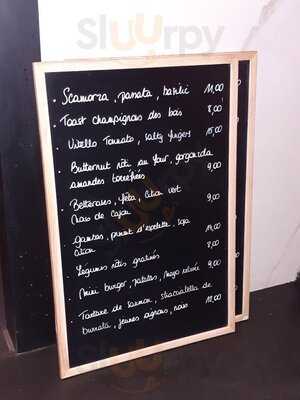 Sluurpy
Scamorza, panata, basilic 11,00
Toast champignons des bois 8,00
Vitello Tonnato, salty fingers 15,00
Butternut rôti au four, gorgonzola 9,00
amandes torréfiées
Betteraves, féta, citron vert 9,00
Noix de cajou
Gambas, piment d'espelette, soja 14,00
citron
Légumes rôtis gratinés 8,00
Mini burger, patates, mayo 9,00
Tartare de saumon, stracciatella de 12,00
burrata, jeunes oignons, noix